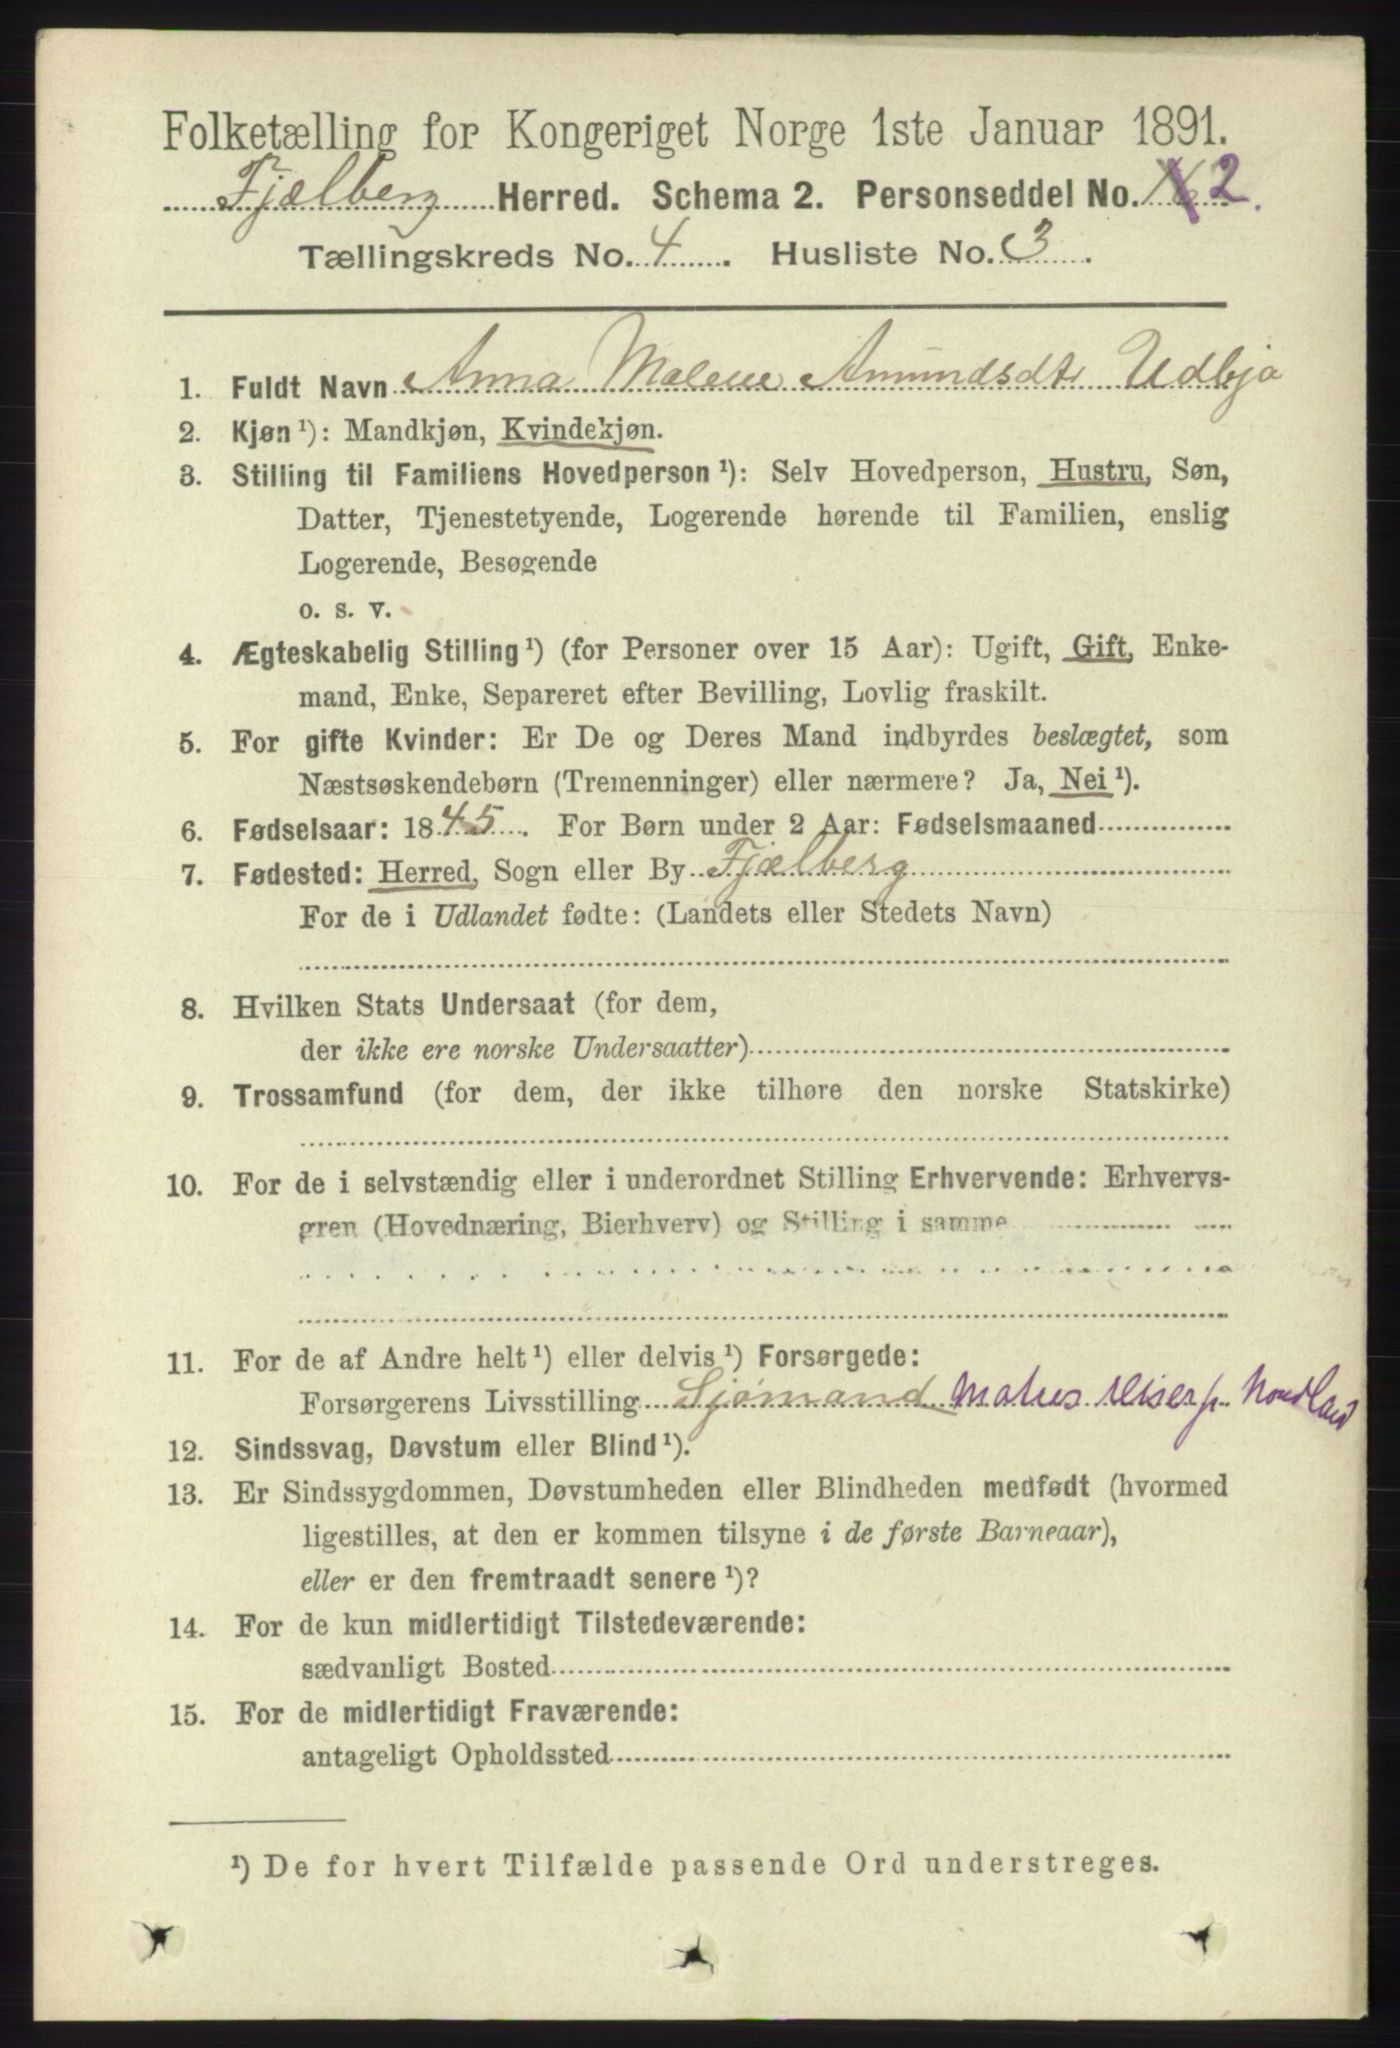 Folketælling for Kongeriget Norge 1ste Januar 1891.
Fjælberg Herred. Schema 2. Personseddel No. 2.
Tællingskreds No. 4. Husliste No. 3.
1. Fuldt Navn Anna Malene Amundsdt. Udbjo
2. Kjøn ¹): Mandkjøn, Kvindekjøn.
3. Stilling til Familiens Hovedperson ¹): Selv Hovedperson, Hustru, Søn,
Datter, Tjenestetyende, Logerende hørende til Familien, enslig
Logerende, Besøgende
o. s. v.
4. Ægteskabelig Stilling ¹) (for Personer over 15 Aar): Ugift, Gift, Enke-
mand, Enke, Separeret efter Bevilling, Lovlig fraskilt.
5. For gifte Kvinder: Er De og Deres Mand indbyrdes beslægtet, som
Næstsøskendebørn (Tremenninger) eller nærmere? Ja, Nei ¹).
6. Fødselsaar: 1845. For Børn under 2 Aar: Fødselsmaaned
7. Fødested: Herred, Sogn eller By Fjælberg
For de i Udlandet fødte: (Landets eller Stedets Navn)
8. Hvilken Stats Undersaat (for dem,
der ikke ere norske Undersaatter)
9. Trossamfund (for dem, der ikke tilhøre den norske Statskirke)
10. For de i selvstændig eller i underordnet Stilling Erhvervende: Erhvervs-
gren (Hovednæring, Bierhverv) og Stilling i samme
11. For de af Andre helt ¹) eller delvis ¹) Forsørgede:
Forsørgerens Livsstilling Sjømand reiser p. Nordland
12. Sindssvag, Døvstum eller Blind ¹).
13. Er Sindssygdommen, Døvstumheden eller Blindheden medfødt (hvormed
ligestilles, at den er kommen tilsyne i de første Barneaar),
eller er den fremtraadt senere ¹)?
14. For de kun midlertidigt Tilstedeværende:
sædvanligt Bosted
15. For de midlertidigt Fraværende:
antageligt Opholdssted
¹) De for hvert Tilfælde passende Ord understreges.